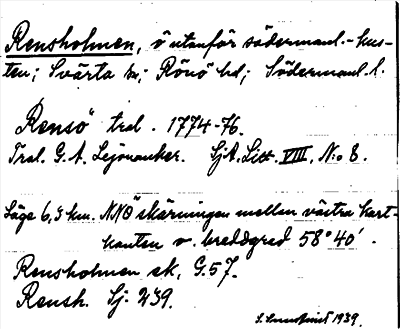 Rensholmen, ö utanför södermanl.-kus-
ten; Svärta sn; Rönö hd; Södermanl. l.
"Rensö" tral. 1774-76.
Tral. G. A. Lejonanker. SjA, Litt. VIII, N:o 8.
Läge 6,5 km. NNO skärningen mellan västra kart-
kanten o. breddgrad 58°40'.
Rensholmen ek. G.57.
Rensh. Sj. 239.
1939.